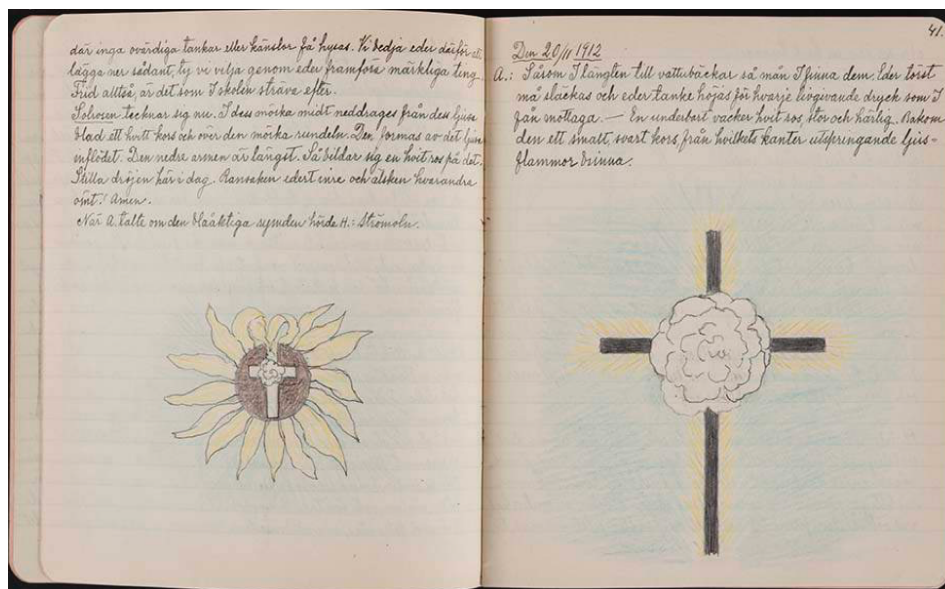 där inga ovärdiga tankar eller känslor få hysas. Vi bedja eder därför att
lägga ner sådant, ty vi vilja genom eder framföra märkliga ting.
Frid alltså, är det som I skolen sträva efter.
Solrosen tecknar sig nu. I dess mörka midt neddrages från dess ljusa
blad ett hvitt kors och över den mörka rundeln. Den formas av det ljusa
inflödet. Den nedre armen är längst. Så bildar sig en hvit ros på det.
Stilla dröjen här i dag. Ransaken edert inre och älsken hvarandra
ömt! Amen.
När A. talte om den blåaktiga rymden hörde H.: Strömoln.
41.
Den 20/11 1912
A.: Såsom I längten till vattubäckar så mån I finna dem. Eder törst
må släckas och eder tanke höjas för hvarje livgivande dryck som I
fån mottaga. — En underbart vacker hvit ros stor och härlig. Bakom
den ett smalt, svart kors, från hvilkets kanter utspringande ljus-
flammor brinna.